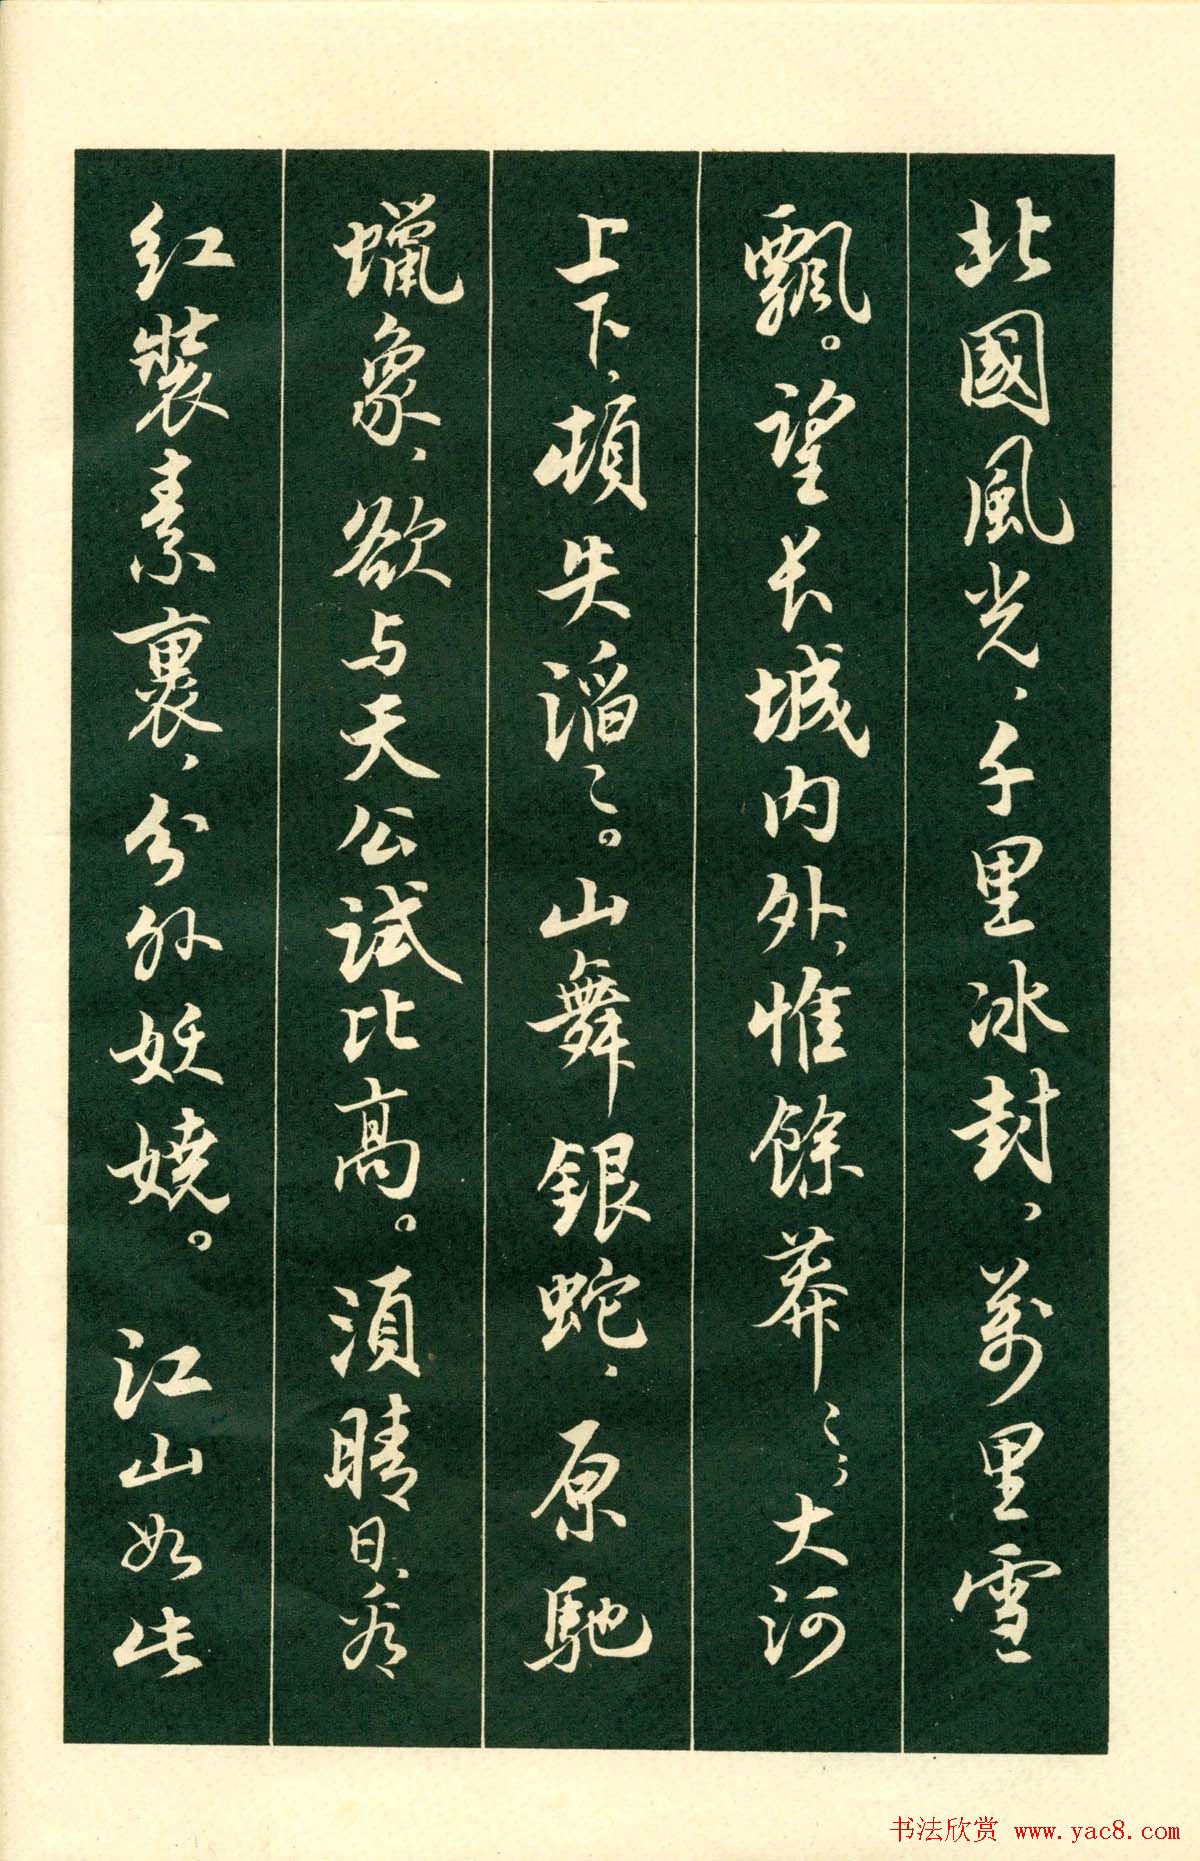 北國風光、千里冰封、萬里雪
飄。望長城內外、惟餘莽〻、大河
上下、頓失滔〻。山舞銀蛇、原馳
蠟象、欲与天公試比高。須晴日、看
紅裝素裹、分外妖嬈。江山如此
书法欣赏 www.yac8.com